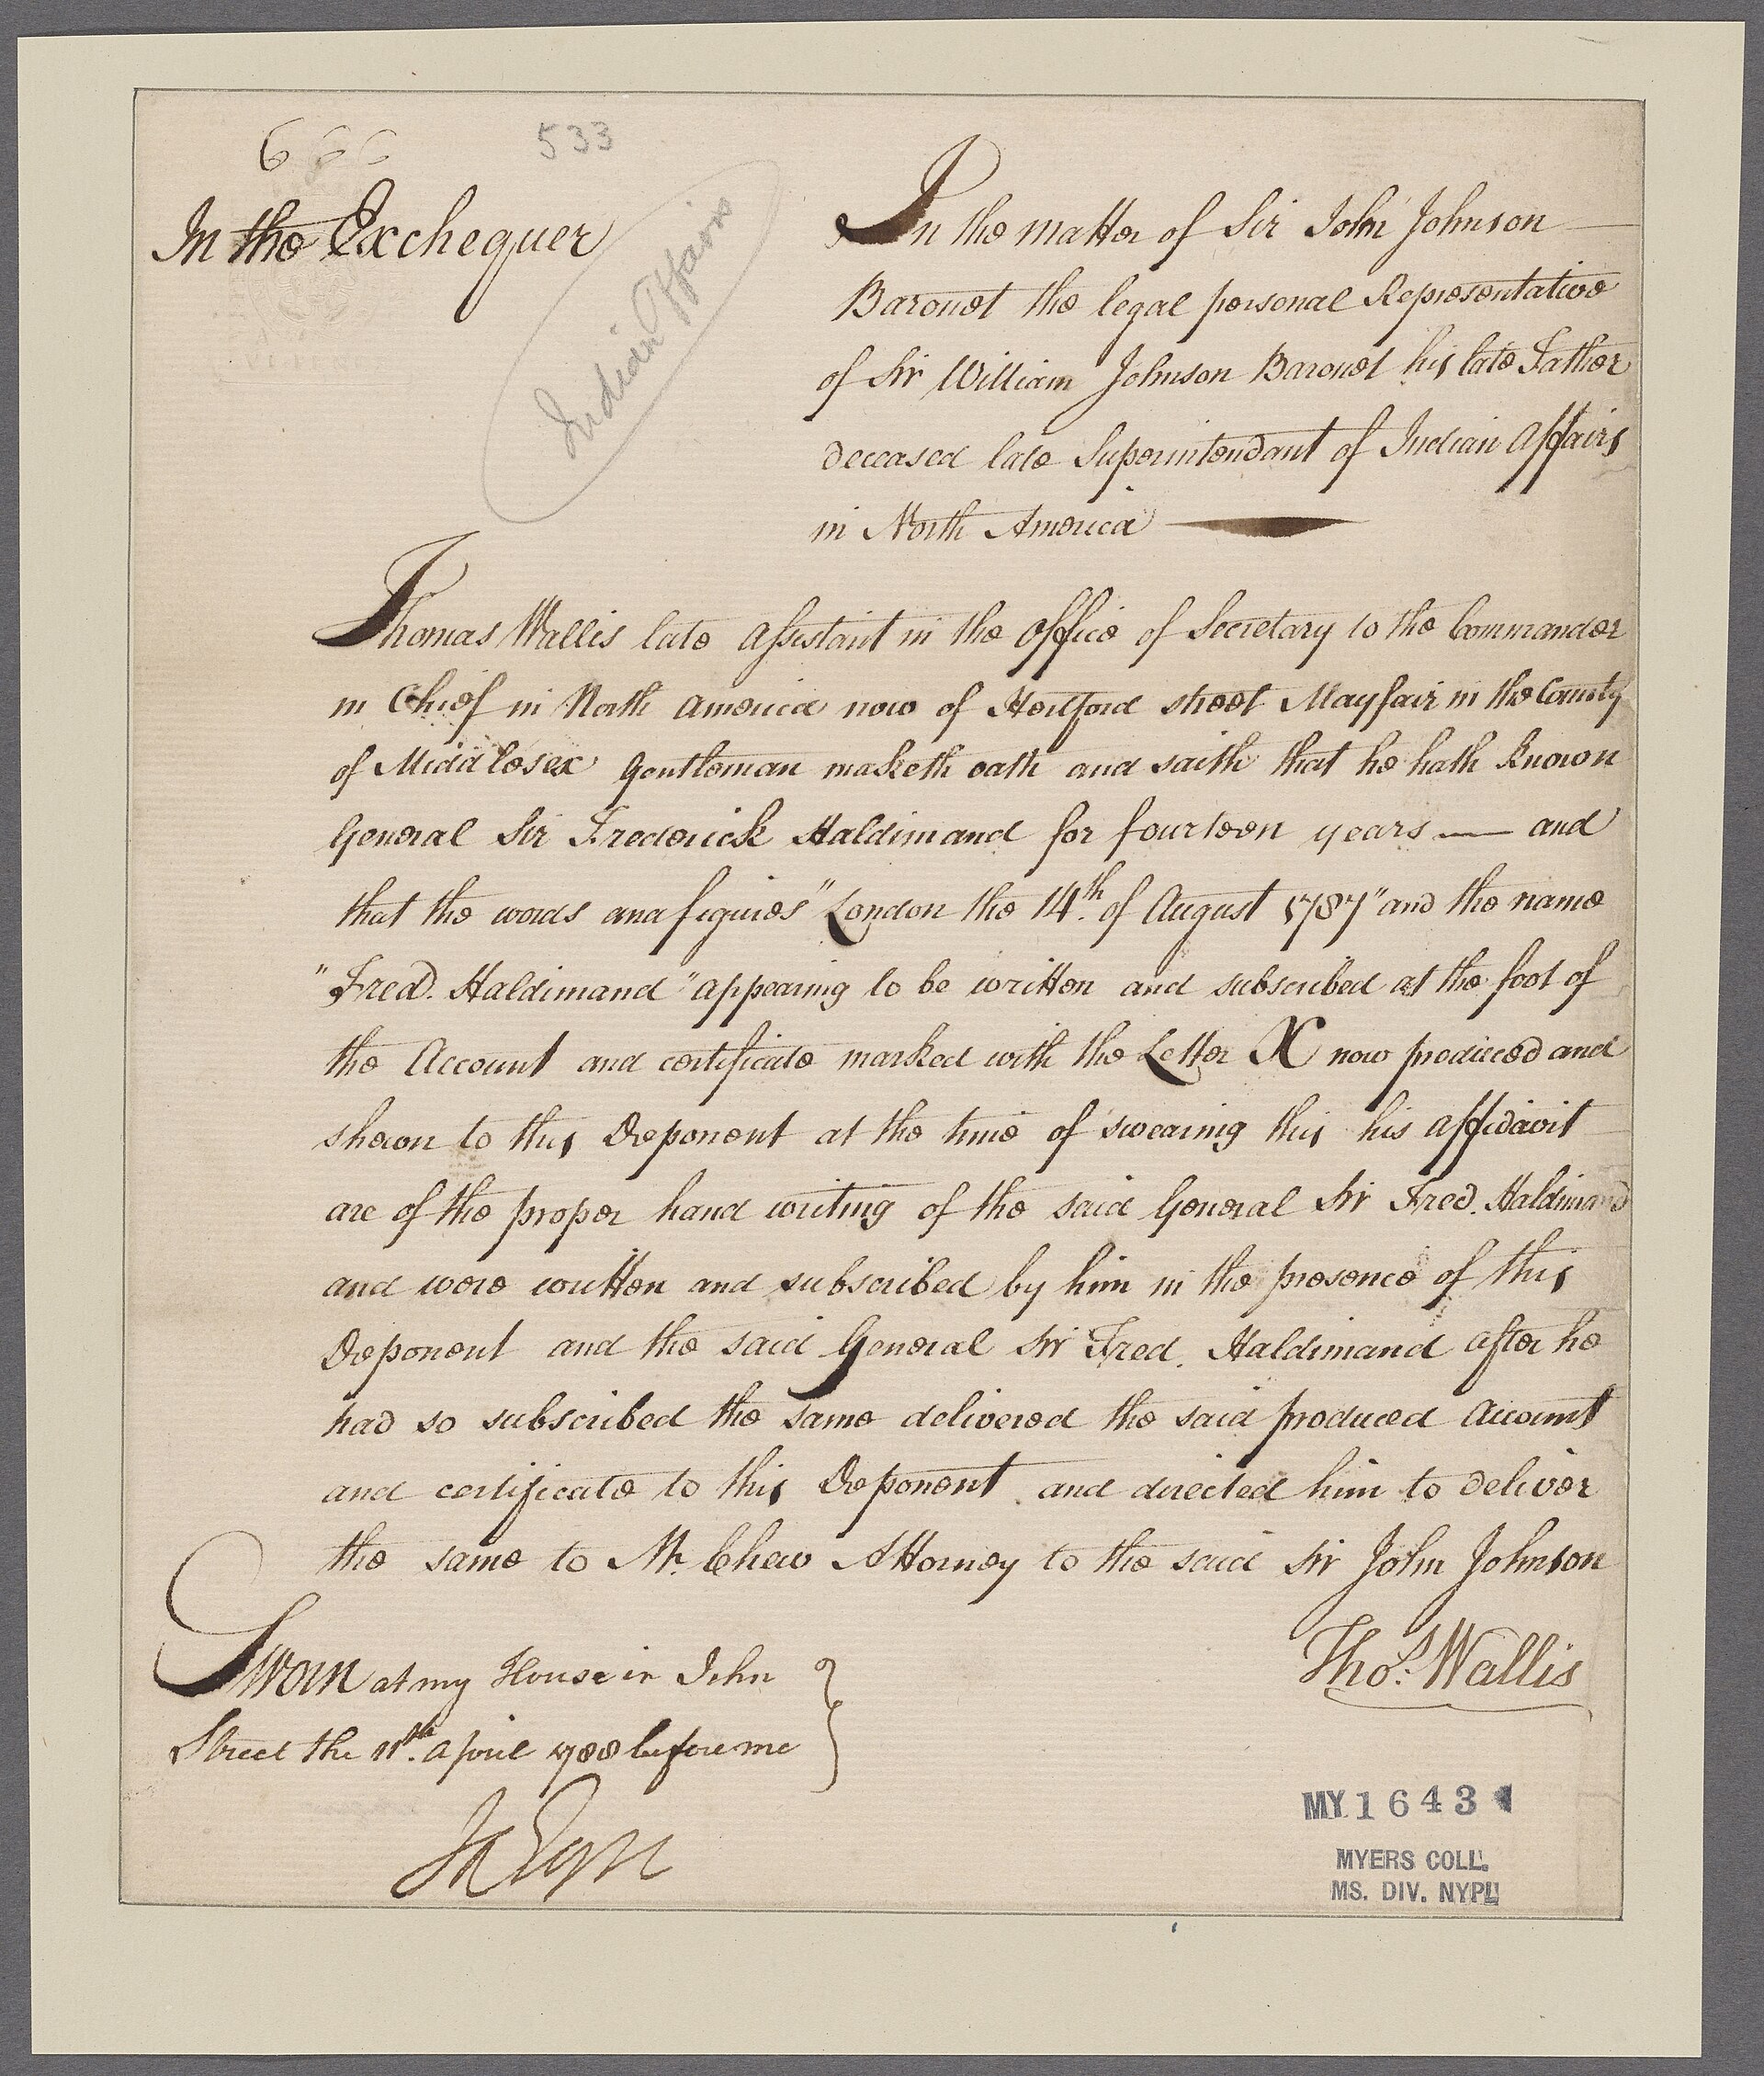 533
In the Exchequer
Indian Affairs
In the matter of Sir John Johnson
Baronet the legal personal Representative
of Sir William Johnson Baronet his late Father
deceased late Superintendant of Indian Affairs
in North America
Thomas Wallis late Assistant in the Office of Secretary to the Commander
in Chief in North America now of Hertford street Mayfair in the County
of Middlesex Gentleman maketh oath and saith that he hath known
General Sir Frederick Haldimand for fourteen years — and
that the words and figures "London the 14th. of August 1787" and the name
"Fred. Haldimand" appearing to be written and subscribed at the foot of
the Account and certificate marked with the Letter X now produced and
shewn to this Deponent at the time of swearing this his affidavit
are of the proper hand writing of the said General Sir Fred. Haldimand
and were written and subscribed by him in the presence of this
Deponent and the said General Sir Fred. Haldimand after he
had so subscribed the same delivered the said produced Account
and certificate to this Deponent and directed him to deliver
the same to Mr. Chew Attorney to the said Sir John Johnson
Thos. Wallis
Sworn at my House in John
Street the 11th. April 1788 before me
MY 1643
MYERS COLL.
MS. DIV. NYPL